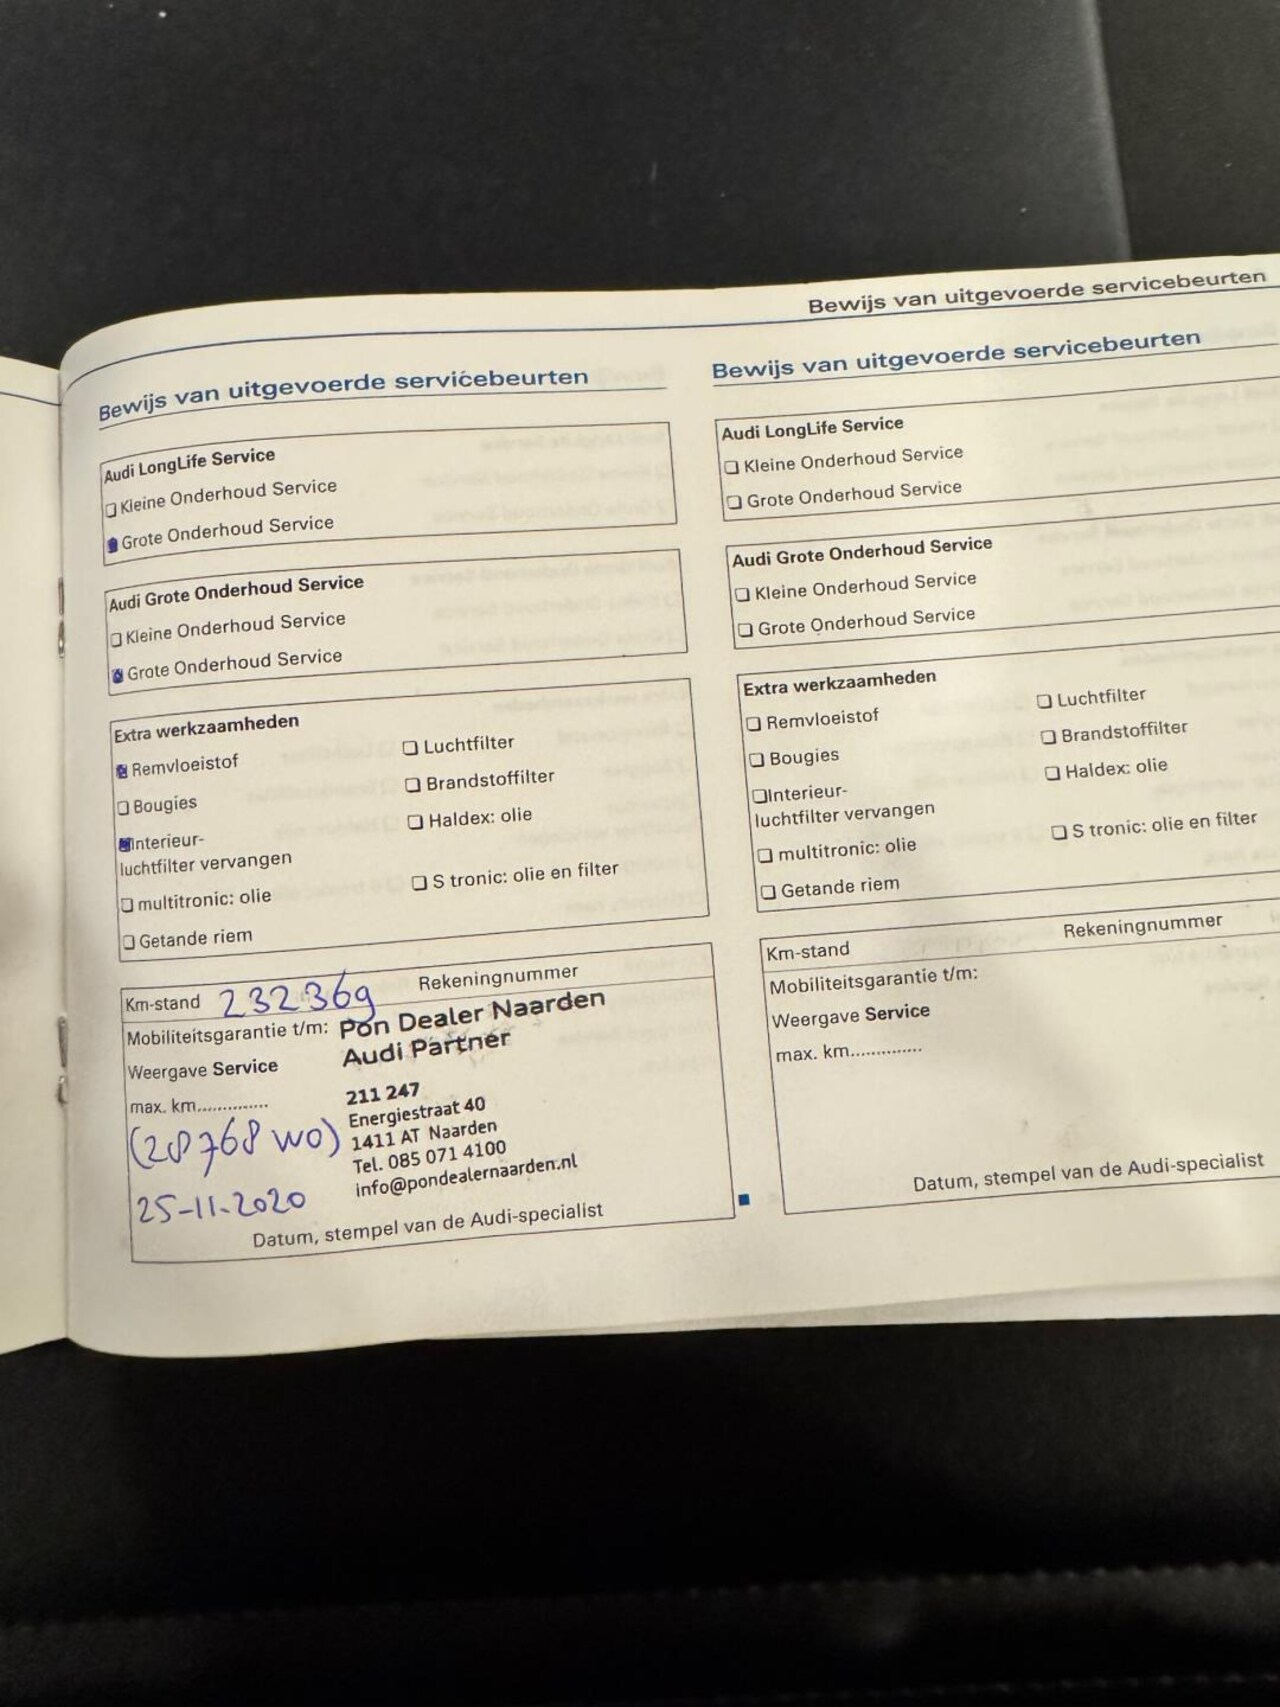 Bewijs van uitgevoerde servicebeurten
Bewijs van uitgevoerde servicebeurten
Audi LongLife Service
Kleine Onderhoud Service
Grote Onderhoud Service
Audi Grote Onderhoud Service
Kleine Onderhoud Service
Grote Onderhoud Service
Extra werkzaamheden
Remvloeistof
Bougies
Interieur-
luchtfilter vervangen
multitronic: olie
Getande riem
Luchtfilter
Brandstoffilter
Haldex: olie
S tronic: olie en filter
Km-stand 232369
Rekeningnummer
Mobiliteitsgarantie t/m:
Weergave Service
max. km..............
(28768 WO)
25-11-2020
Pon Dealer Naarden
Audi Partner
211 247
Energiestraat 40
1411 AT Naarden
Tel. 085 071 4100
info@pondealernaarden.nl
Datum, stempel van de Audi-specialist
Bewijs van uitgevoerde servicebeurten
Audi LongLife Service
Kleine Onderhoud Service
Grote Onderhoud Service
Audi Grote Onderhoud Service
Kleine Onderhoud Service
Grote Onderhoud Service
Extra werkzaamheden
Remvloeistof
Bougies
Interieur-
luchtfilter vervangen
multitronic: olie
Getande riem
Luchtfilter
Brandstoffilter
Haldex: olie
S tronic: olie en filter
Km-stand
Rekeningnummer
Mobiliteitsgarantie t/m:
Weergave Service
max. km..............
Datum, stempel van de Audi-specialist